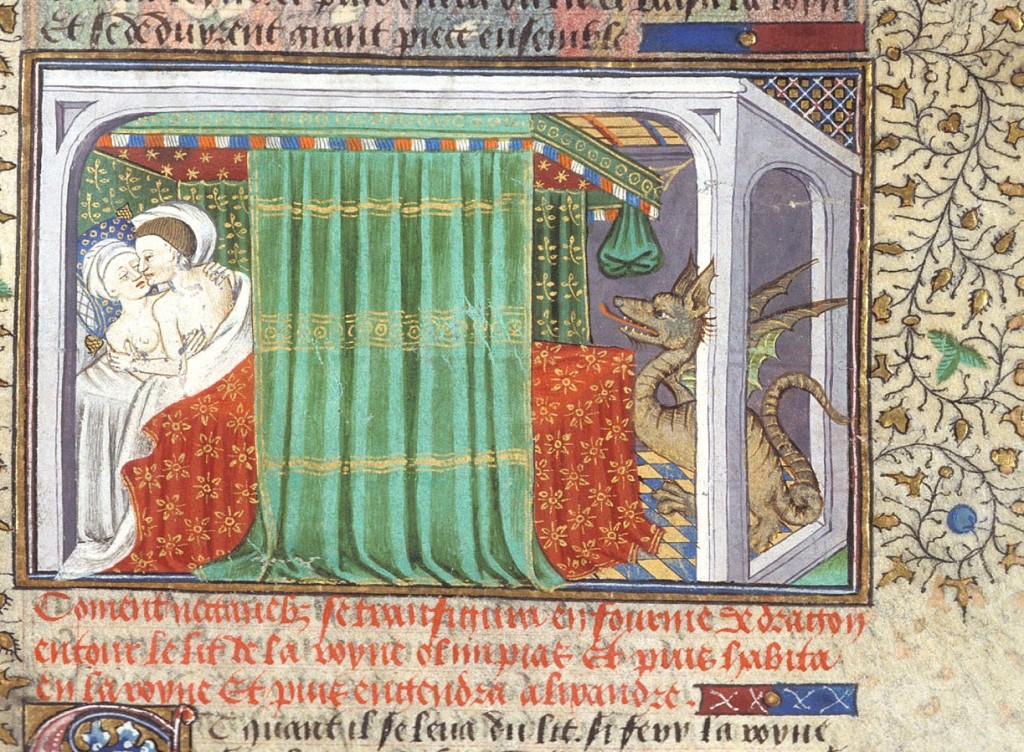 Et se deduyrent grant piece ensemble
Coment nectanebus se transfigura en fourme de dragon
entour le lit de la royne olimpias Et puis habita
en la royne Et puis engendra alixandre.
Et quant il se leua du lit. si fery la royne